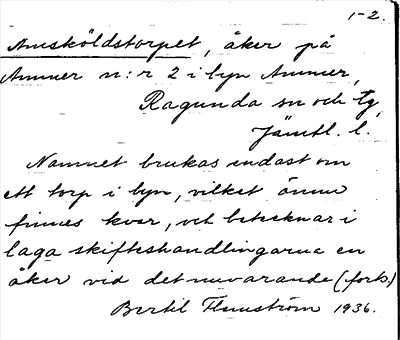 1-2.
Amsköldstorpet, åker på
Ammer n:r 2 i byn Ammer,
Ragunda sn och tg,
Jämtl. l.
Namnet brukas endast om
ett torp i byn, vilket ännu
finnes kvar, och betecknar i
laga skifteshandlingarna en
åker vid det nuvarande (forts.)
Bertil Flemström 1936.